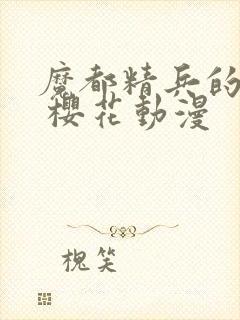 魔都精兵的
櫻花動漫
槐笑